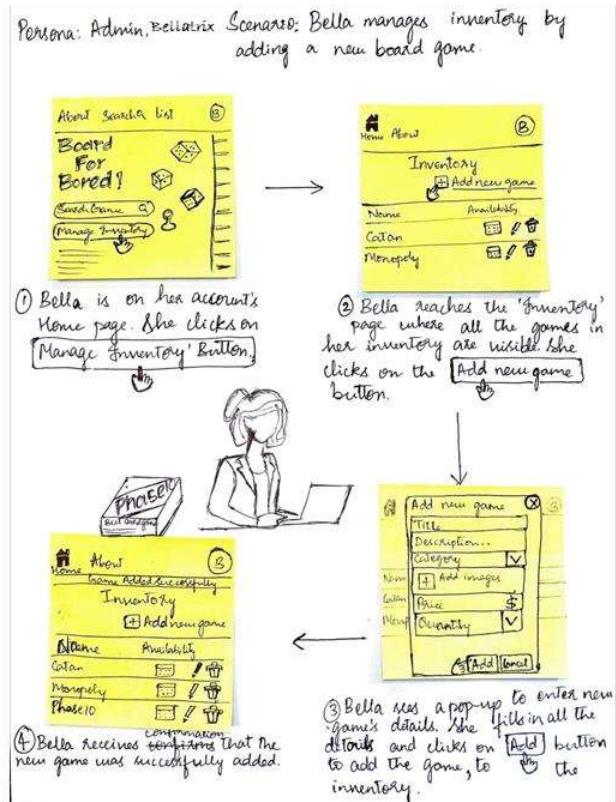 Persona: Admin, Bellatrix Scenario: Bella manages inventory by
adding a new board game.
About Search List B
Board
For
Bored!
Search Game
Manage Inventory
① Bella is on her account's
Home page. She clicks on
'Manage Inventory' Button.
Home About B
Inventory
+ Add new game
Name Availability
Catan
Monopoly
② Bella reaches the 'Inventory'
page where all the games in
her inventory are visible. She
clicks on the Add new game
button.
Add new game X
Title
Description..
Category
+ Add images
Price $
Quantity
Add Cancel
③ Bella sees a pop-up to enter new
game's details. She fills in all the
details and clicks on Add button
to add the game, to the
inventory.
Phase10
Home About B
Game Added Successfully
Inventory
+ Add new game
Name Availability
Catan
Monopoly
Phase10
④ Bella receives confirmation that the
new game was successfully added.